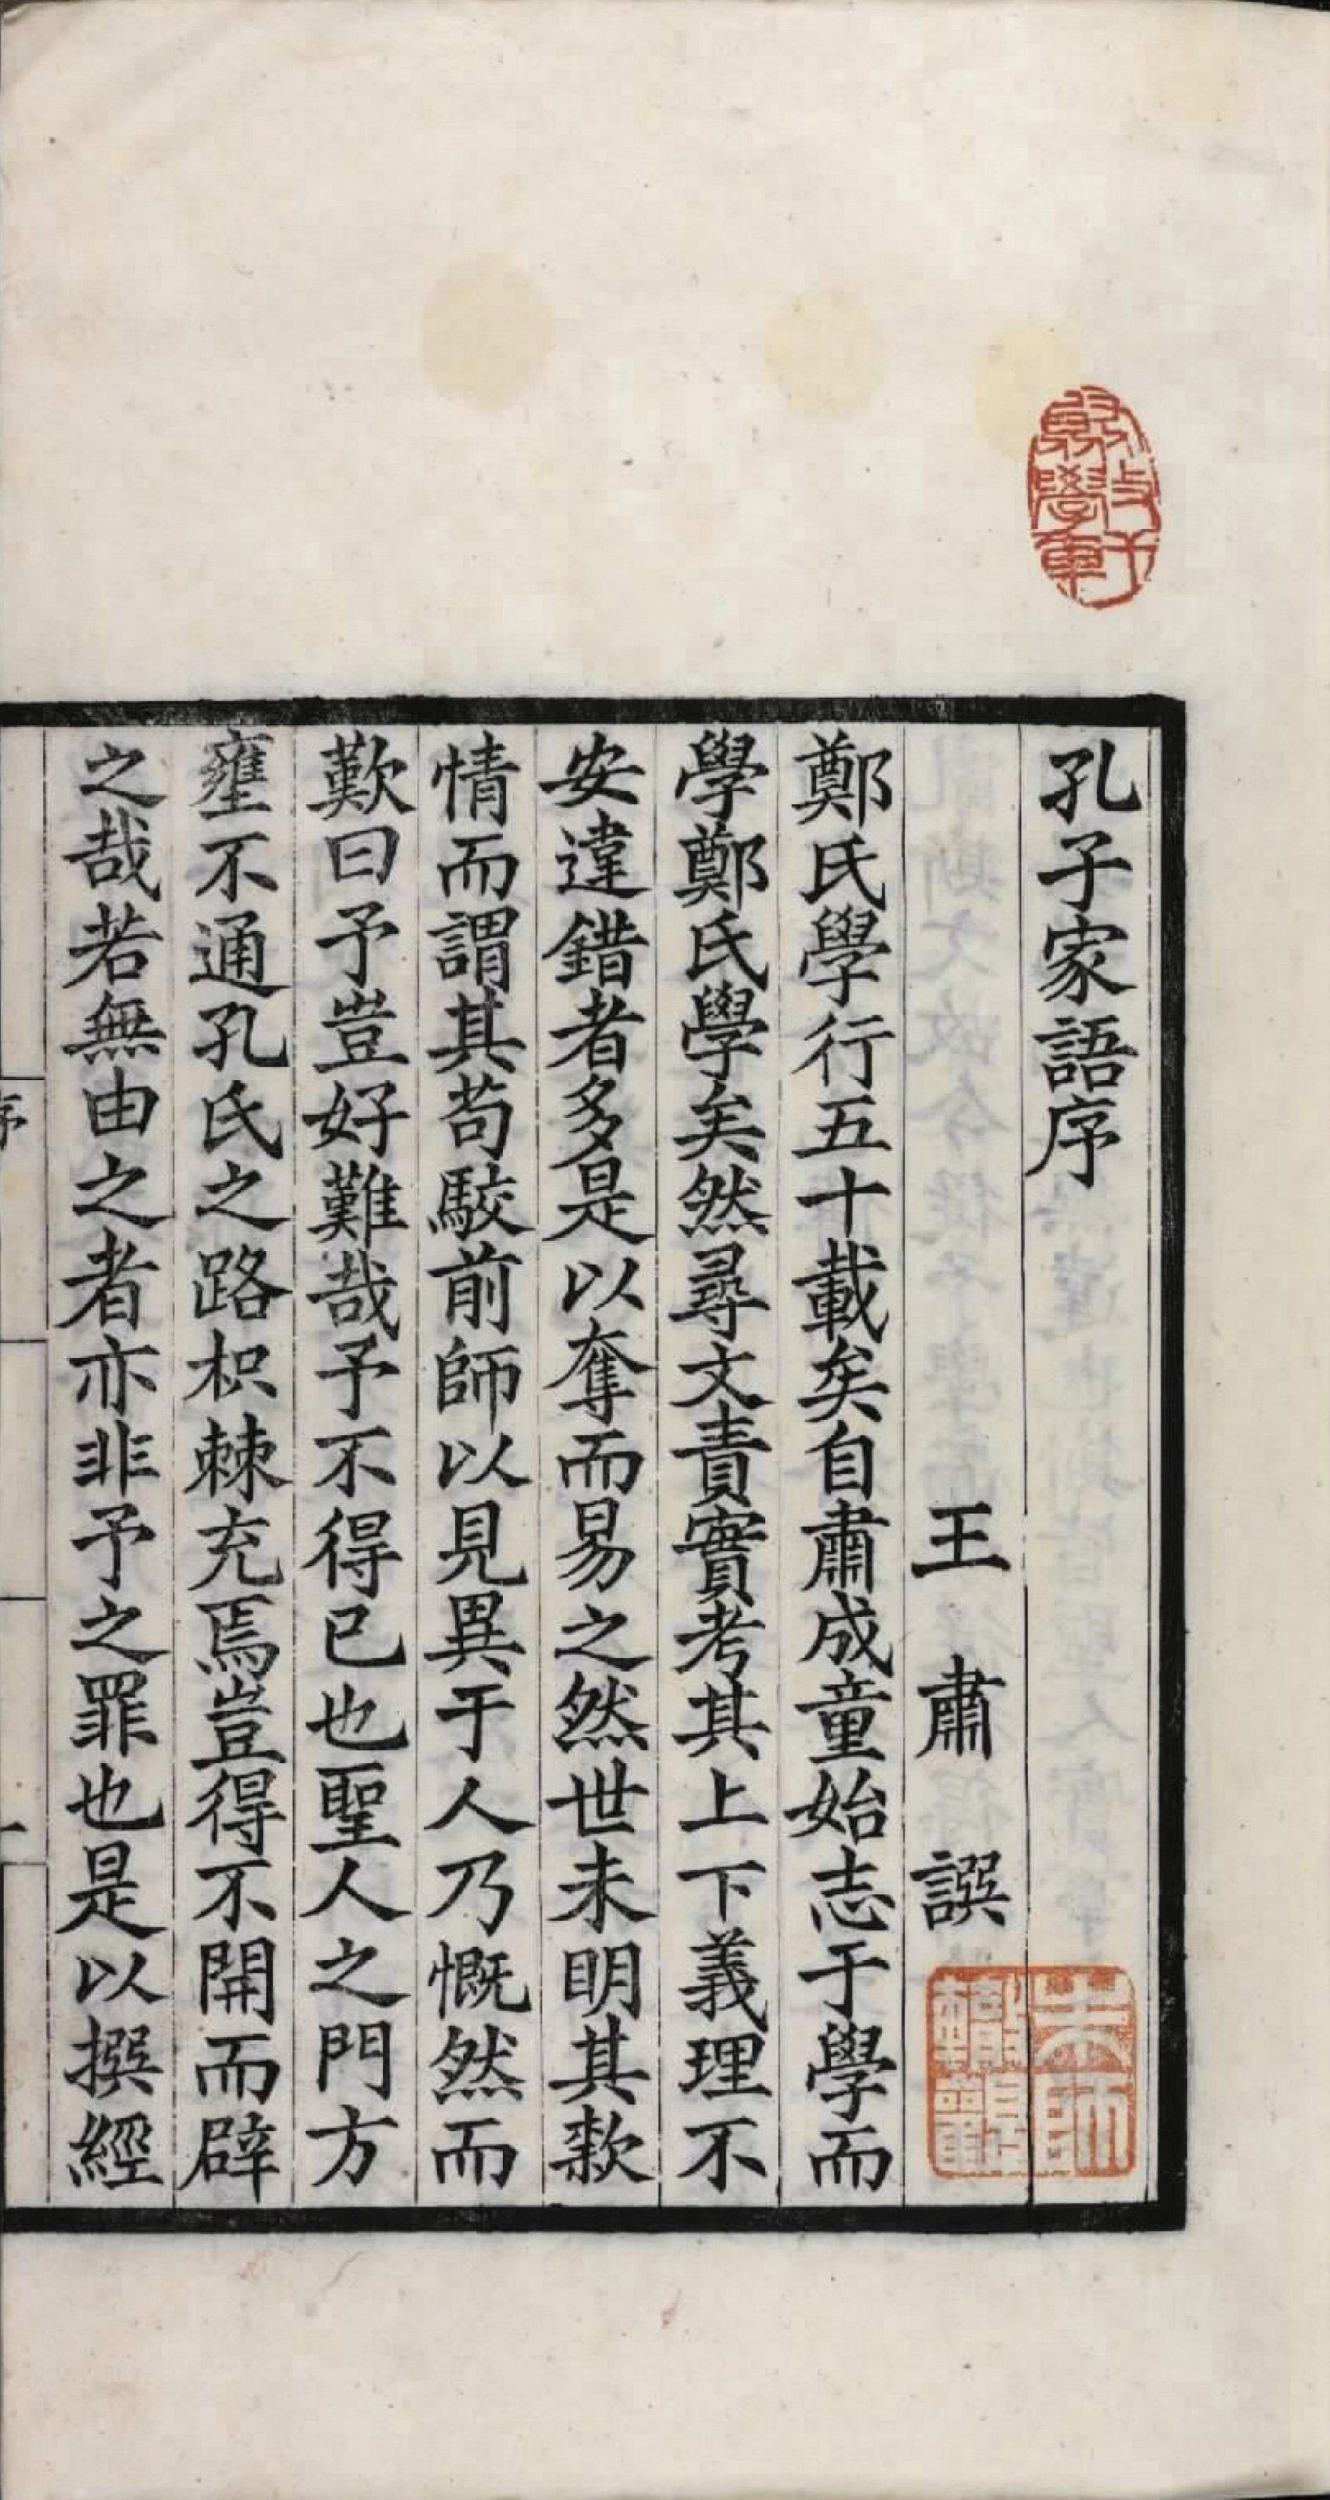 孔子家語序
王肅譔
鄭氏學行五十載矣自肅成童始志于學而
學鄭氏學矣然尋文責實考其上下義理不
安違錯者多是以奪而易之然世未明其款
情而謂其苟駮前師以見異于人乃慨然而
歎曰予豈好難哉予不得已也聖人之門方
壅不通孔氏之路枳棘充焉豈得不開而辟
之哉若無由之者亦非予之罪也是以撰經
序
一